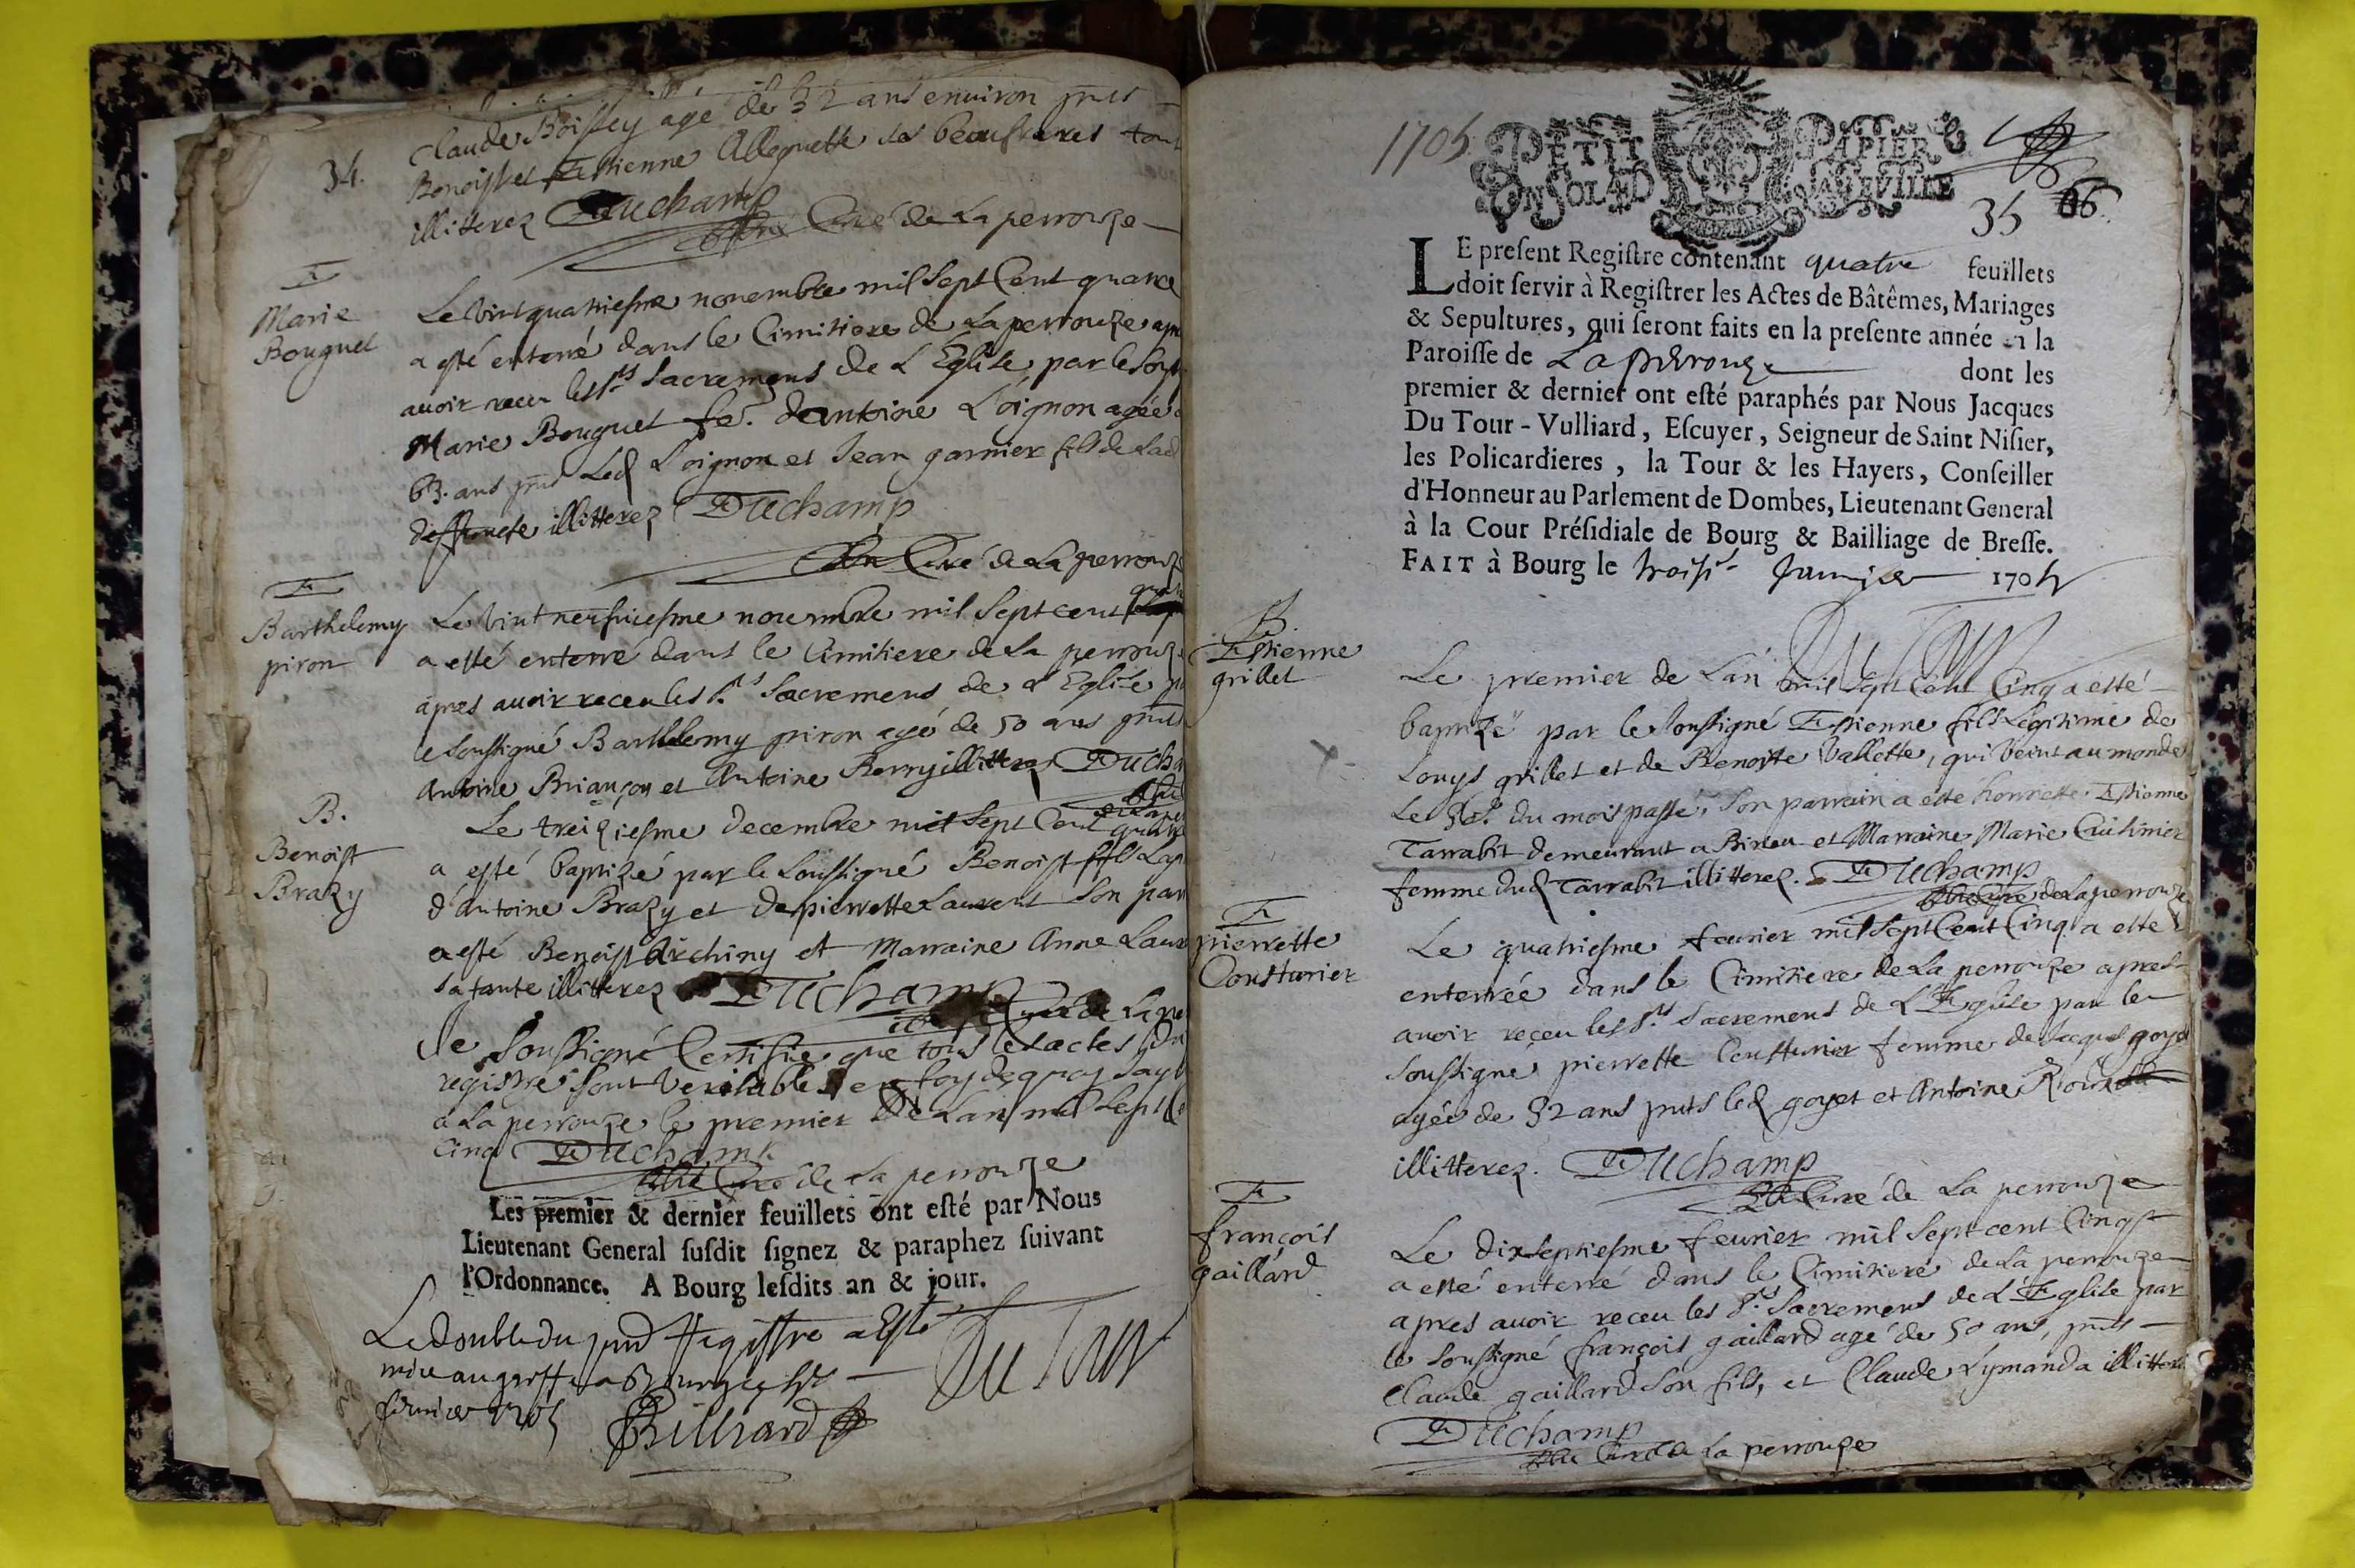 34.
Claude Boissey agé de 32 ans environ pnts
Benoist et Estienne Alleguette ses beaufreres tous
illitterez Duchamp
Curé de La perrouze
E
Marie
Bouguet
Le vint quatriesme nouembre mil Sept Cent quatre
a esté enterré dans le Cimitiere de La perrouze apr
auoir receu les Sts Sacremens de L'Eglise par le Sous
Marie Bouguet fe. d'antoine Loignon agée
63. ans pnts Led Loignon et Jean garnier fils de Lad
deffuncte illitterez Duchamp
Curé de La perrouz
E
Barthelemy
piron
Le vint nersuiesme nouembre mil Sept cent
a esté enterré dans le Cimitiere de La perrouz
apres auoir receu les Sts Sacremens de L'Eglise p
le Soussigné Barthelemy piron agé de 50 ans pnts
Antoine Briançon et Antoine Berry illitterez Ducha
B.
Benoist
Brazy
Le treiziesme decembre mil Sept Cent quatre
a esté baptizé par le Soussigné Benoist fils
d'Antoine Brazy et de pierrette Laurent Son par
a esté Benoist Archiny et Marraine Anne Laur
Sa tante illitterez Duchamp
Curé de La pe
Je Soussigné Certifie que tous les actes
registre Sont Veritables en foy de quoy Jay
a La perrouze le premier De Lan mil Sept
Cinq Duchamp
Curé de La perrouze
Les premier & dernier feuïllets ont esté par Nous
Lieutenant General susdit signez & paraphez suivant
l'Ordonnance. A Bourg lesdits an & jour.
Le double du pnt Registre a Esté
mis au greffe a Bourg
feurier 1705 Billiard
Du Tour
1705
PETIT PAPIER
EN SOL LA FEVILLE
35 66.
LE present Registre contenant quatre feuillets
doit servir à Registrer les Actes de Bâtêmes, Mariages
& Sepultures, qui seront faits en la presente année en la
Paroisse de Laperrouze dont les
premier & dernier ont esté paraphés par Nous Jacques
Du Tour-Vulliard, Escuyer, Seigneur de Saint Nisier,
les Policardieres, la Tour & les Hayers, Conseiller
d'Honneur au Parlement de Dombes, Lieutenant General
à la Cour Présidiale de Bourg & Bailliage de Bresse.
FAIT à Bourg le troisie Januier 1705
Du Tour
B.
Estienne
grillet
Le premier de Lan mil Sept Cent Cinq a esté
baptizé par le Soussigné Estienne fils Legitime de
Louys grillet et de Benoiste Vallette, qui Veint au monde
Le du mois passé, Son parrain a esté honneste Estienne
Tarrabit demeurant a Birieu et Marraine Marie Cuisinier
femme dud Tarrabit illitterez. Duchamp
Curé de La perrouze
E
pierrette
Cousturier
Le quatriesme feurier mil Sept Cent Cinq a esté
enterrée dans le Cimitiere de La perrouze apres
auoir receu les Sts Sacremens de L'Eglise par le
Soussigné pierrette Cousturier femme de Jacques goyet
agée de 52 ans pnts led goyet et Antoine
illitterez. Duchamp
Curé de La perrouze
E
françois
gaillard
Le dixseptiesme feurier mil Sept cent Cinq
a esté enterré dans le Cimitiere de La perrouze
apres auoir receu les Sts Sacremens de L'Eglise par
le Soussigné françois gaillard agé de 50 ans, pnts
Claude gaillard Son fils, et Claude Lymanda illitterez
Duchamp
Curé de La perrouze